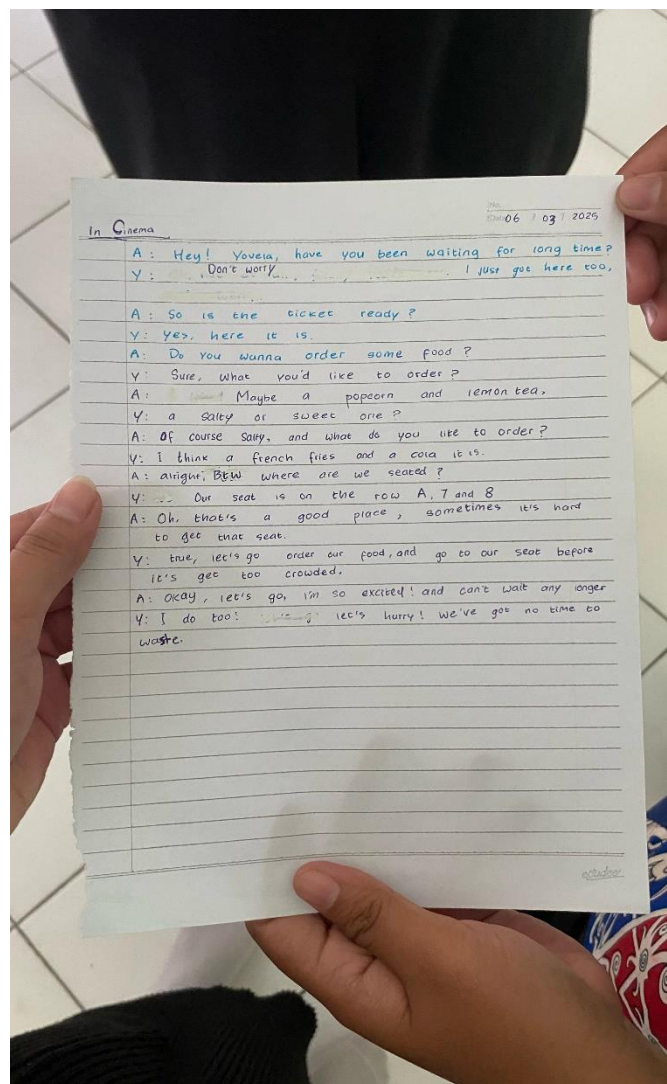 No.
Date 06 / 03 / 2025
In Cinema
A : Hey! Yoveia, have you been waiting for long time?
Y : Don't worry I just got here too,
A : So is the ticket ready ?
Y : Yes, here it is.
A : Do you wanna order some food ?
Y : Sure, what you'd like to order ?
A : Maybe a popcorn and lemon tea,
Y : a salty or sweet one ?
A : Of course salty, and what do you like to order ?
Y : I think a french fries and a cola it is.
A : alright, Btw where are we seated ?
Y : Our seat is on the row A, 7 and 8
A : Oh, that's a good place, sometimes it's hard
to get that seat.
Y : true, let's go order our food, and go to our seat before
it's get too crowded.
A : Okay, let's go, i'm so excited! and can't wait any longer
Y : I do too! let's hurry! we've got no time to
waste.